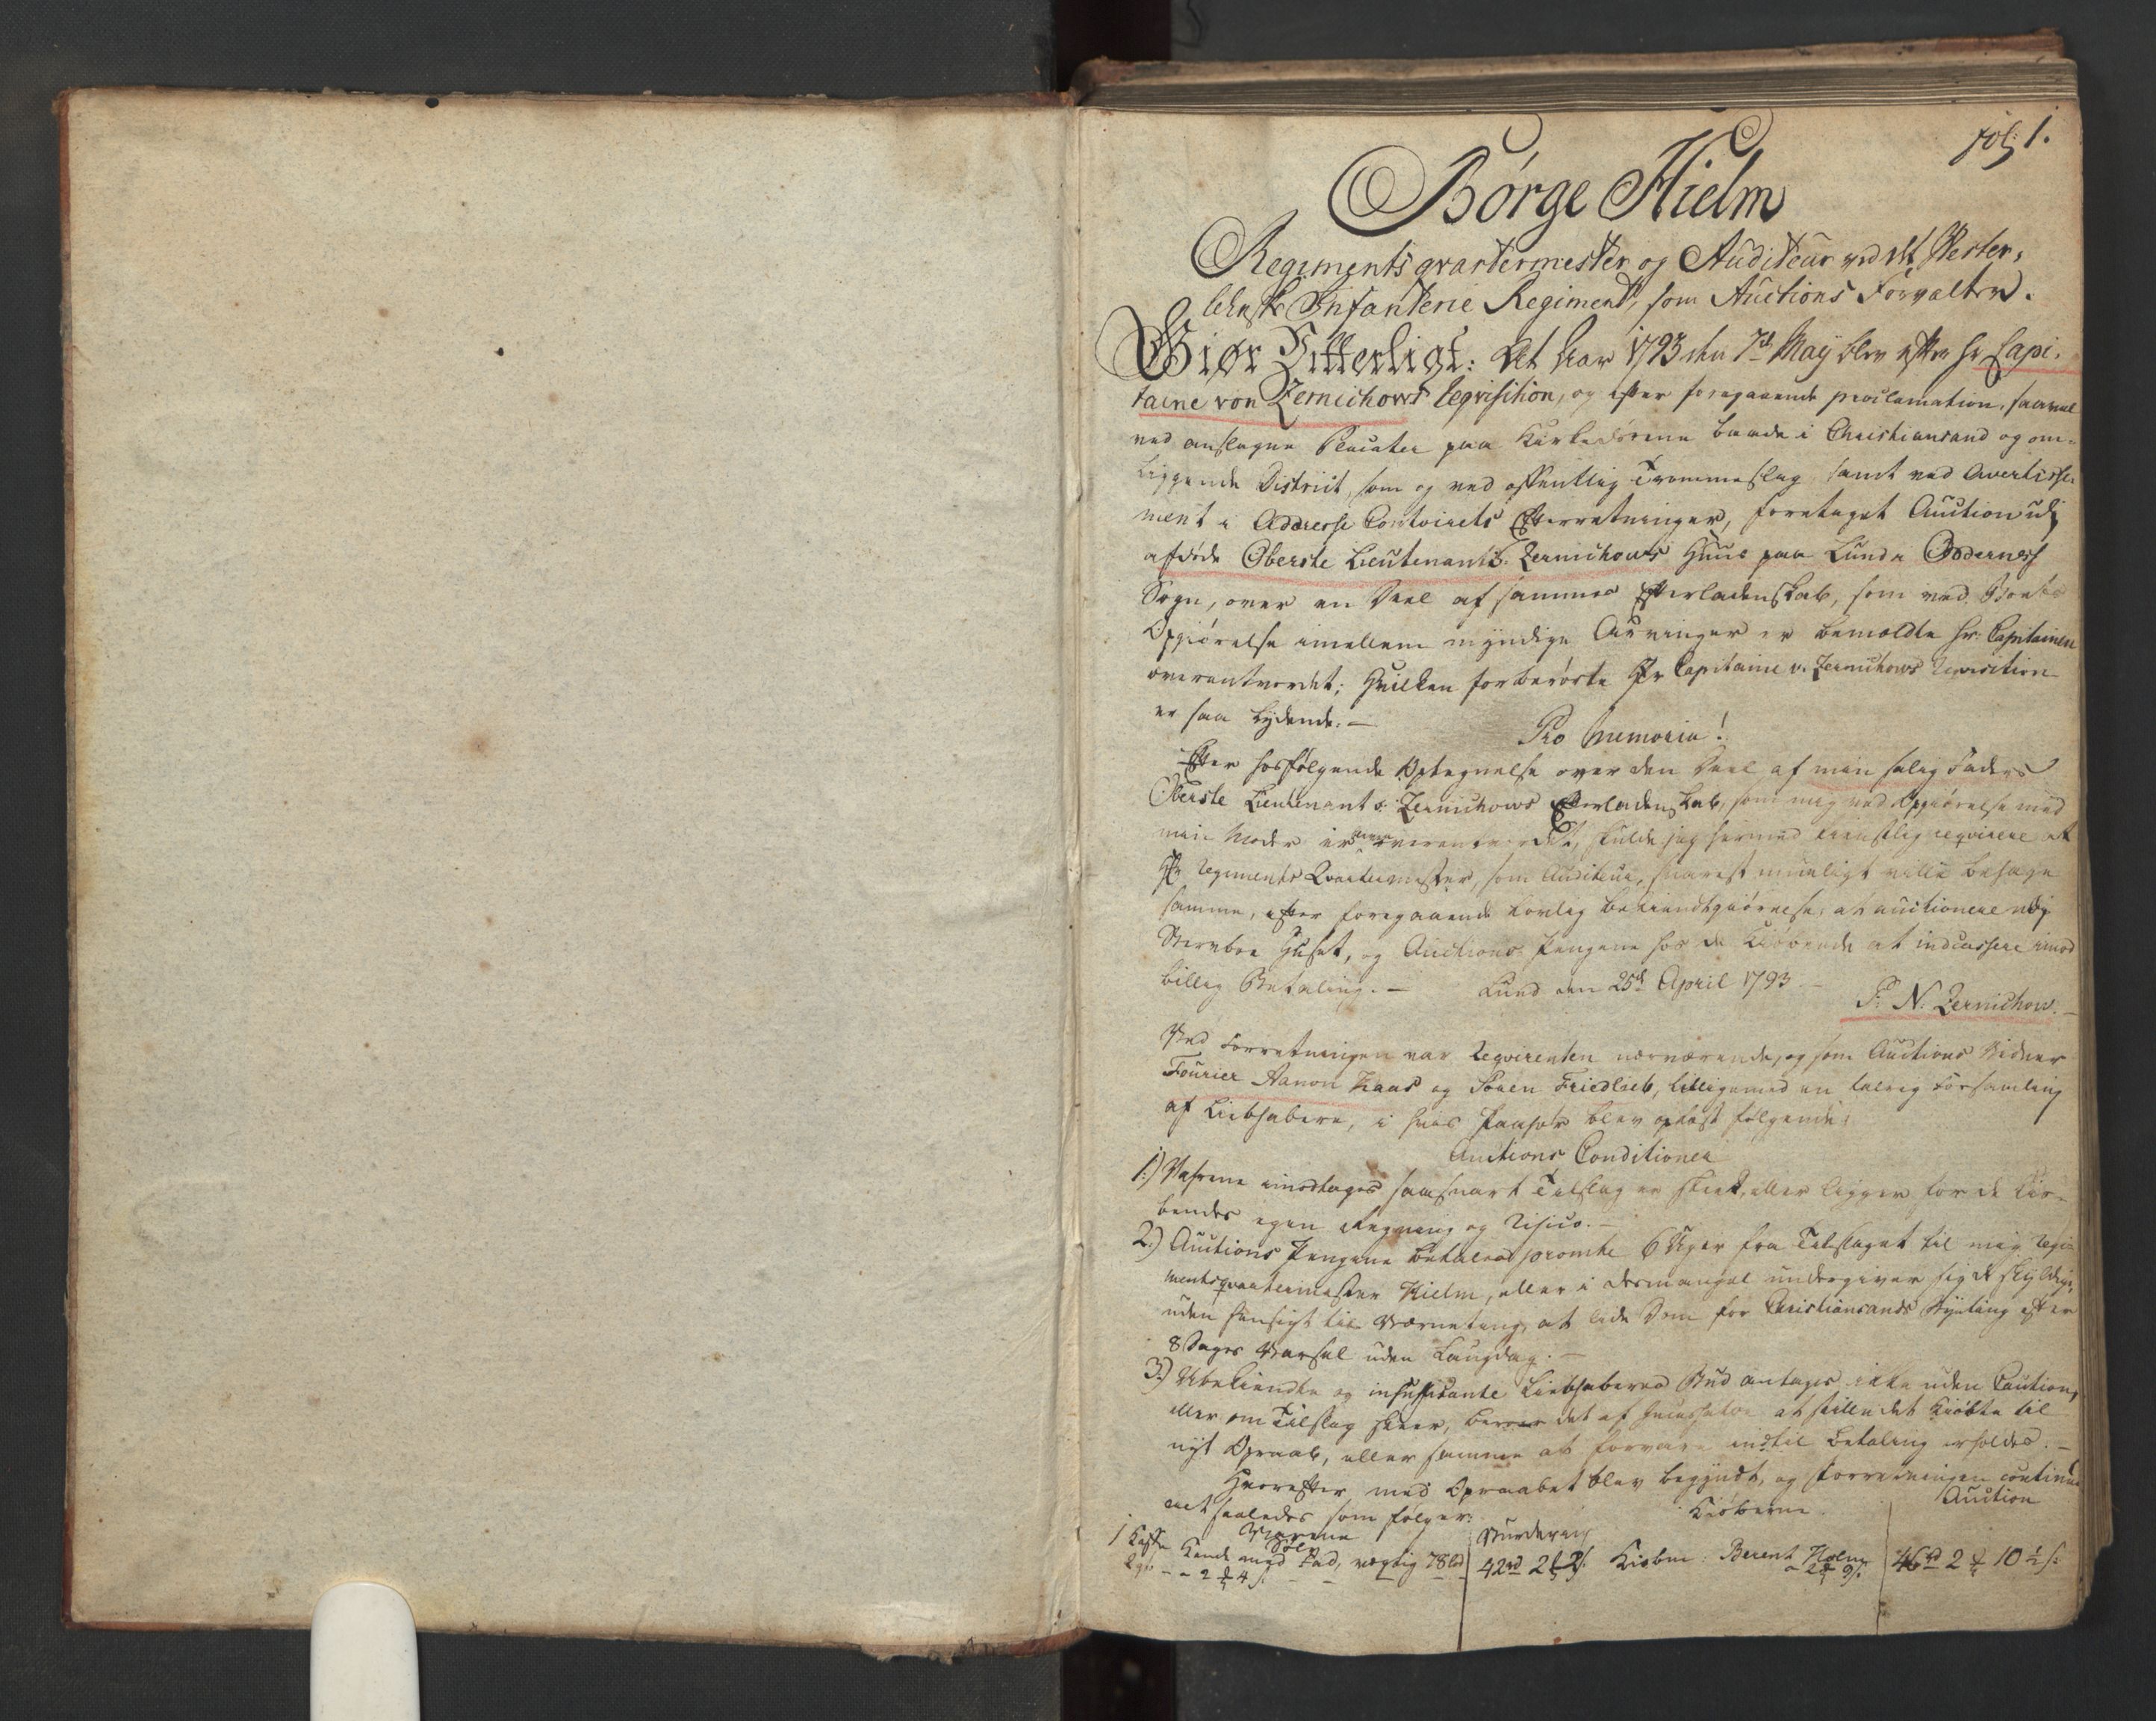 fol: 1.
Børge Hielm
Regimentsqvartermester og Auditeur ved det Vester,
lehnske Infanterie Regiment, som Auctions Forvalter.
Giør Vitterligt: At Aar 1793 den 7de Maij blev efter Hr Capi,
taine von Zernichows Reqvisition, og efter foregaaende proclamation, saavel
ved anslagne Placater paa Kirkedørene baade i Christiansand og om=
liggende District, som og ved offentlig Trommeslag samt ved Avertisse,
ment i Addresse Contoirets Efterretninger, foretaget Auction udj
afdøde Oberste Lieutenant v. Zernichows Huus paa Lunde Oddernes
Sogn, over en Deel af sammes Efterladenskab, som ved Boets
Opgiørelse imellem myndige Arvinger er bemeldte Hr: Capitainen
overantvordet; Hvilken forberørte Hr Capitaine v. Zernichows Reqvisition
er saa lydende. —
Pro Memoria!
Efter hosfølgende Optegnelse over den Deel af min salig Faders
Oberste Lieutenant v. Zernichows Efterladenskab, som mig ved Opgiørelse med
min Moder er overantvordet, skulde jeg hermed tienstlig reqvirere at
Hr Regiments Qvartermester, som Auditeur, snarest mueligt ville behage
samme, efter foregaaende lovlig bekiendtgiørelse, at auctionere udj
Sterv­boe Huset, og Auctions Pengene hos de Kiøbende at indcassere imod
billig Betaling. — Lund den 25de April 1793
P. N. Zernichow. —
Ved Forretningen var Reqvirenten nærværende, og som Auctions Vidner
Fourier Aanon Haas og Søren Friedlieb, tilligemed en talrig Forsamling
af Liebhabere, i hvis Paahør blev oplæst følgende:
Auctions Conditioner
1.) Varene imodtages saasnart Tilslag er skeet, eller ligger for de Kiø=
bendes egen Regning og Risico. —
2.) Auctions Pengene betales promte 6 Uger fra Tilslaget til mig Regi=
mentsqvartermester Hielm, eller i dermangel undergiver sig de skyldige,
uden Hensigt til Værneting, at lide Dom for Christiansands Byeting efter
8 Dages Varsel uden Laugdag. —
3.) Ubekiendte og insufficante Liebhaberes Bud antages ikke uden Caution,
eller om Tilslag skeer, beroer det af Incassator at stille det Kiøbte til
nyt Opraab, eller samme at forvare indtil betaling erholdes. —
Hvorefter med Opraabet blev begyndt, og Forretningen continu
eret saaledes som følger:
Varene Vurdering Kiøberne Auction
Sølv
1 Kaffe Kande med Fad, vægtig 78 lod 42rd 2 ʄ 2 s. Kiøbm: Berent Holm 46rd 2 ʄ 10½ s: